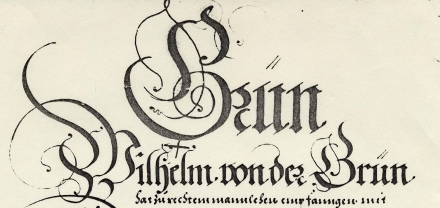 Grün
Wilhelm von der Grün
hat zu rechtem mannlehen empfanngen mit